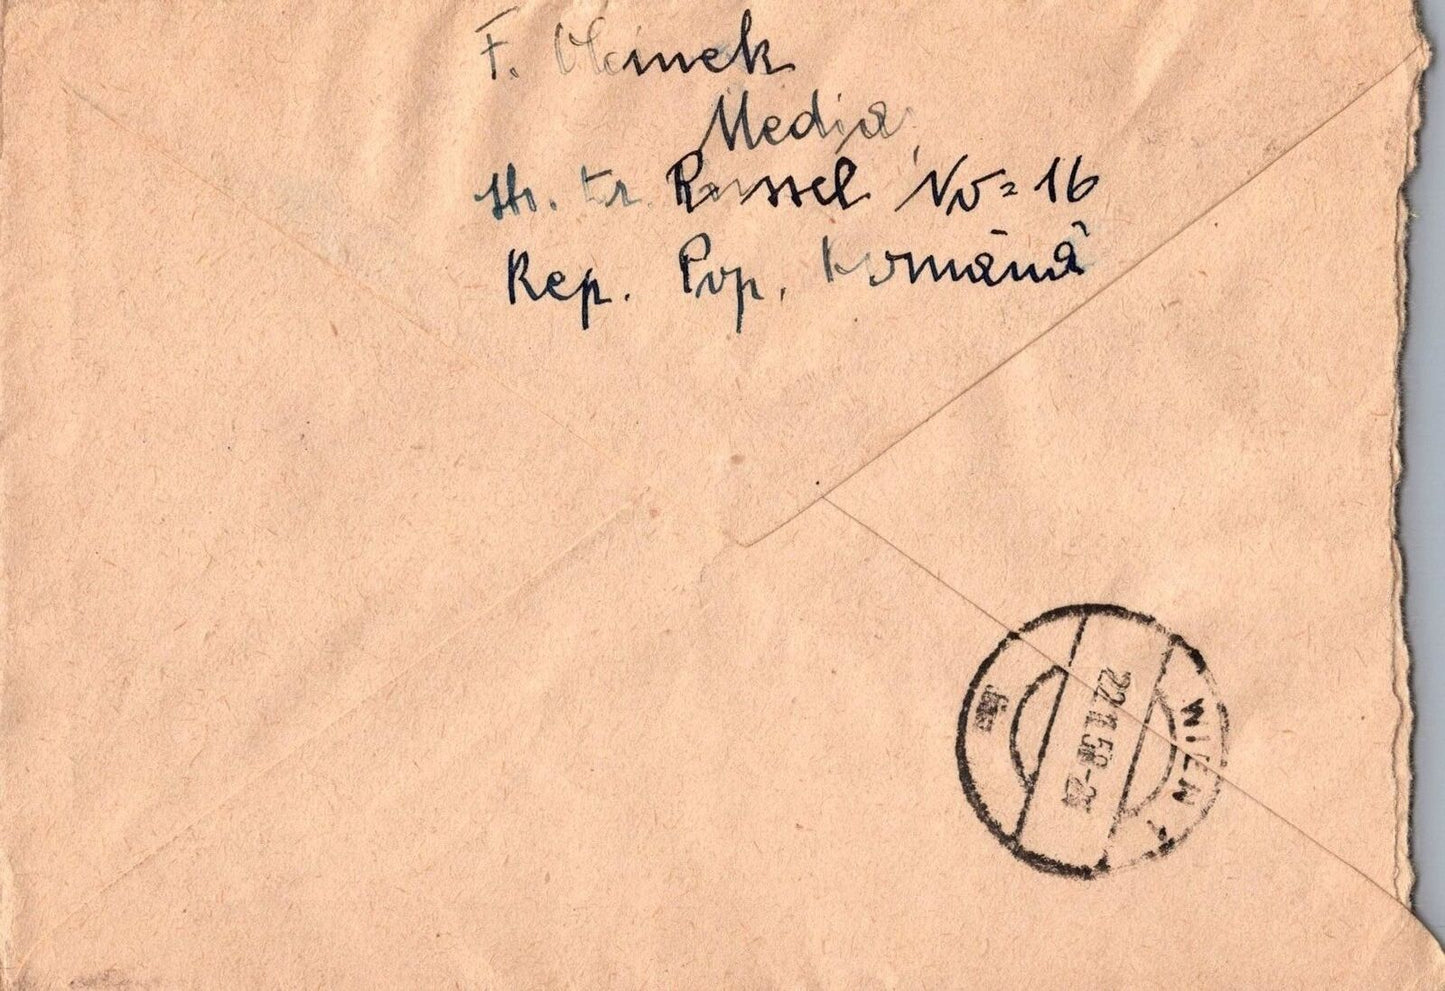 F. Oleinek
Mediaș
Str. Dr. Russel No = 16
Rep. Pop. Română
WIEN 1
22.11.58-21